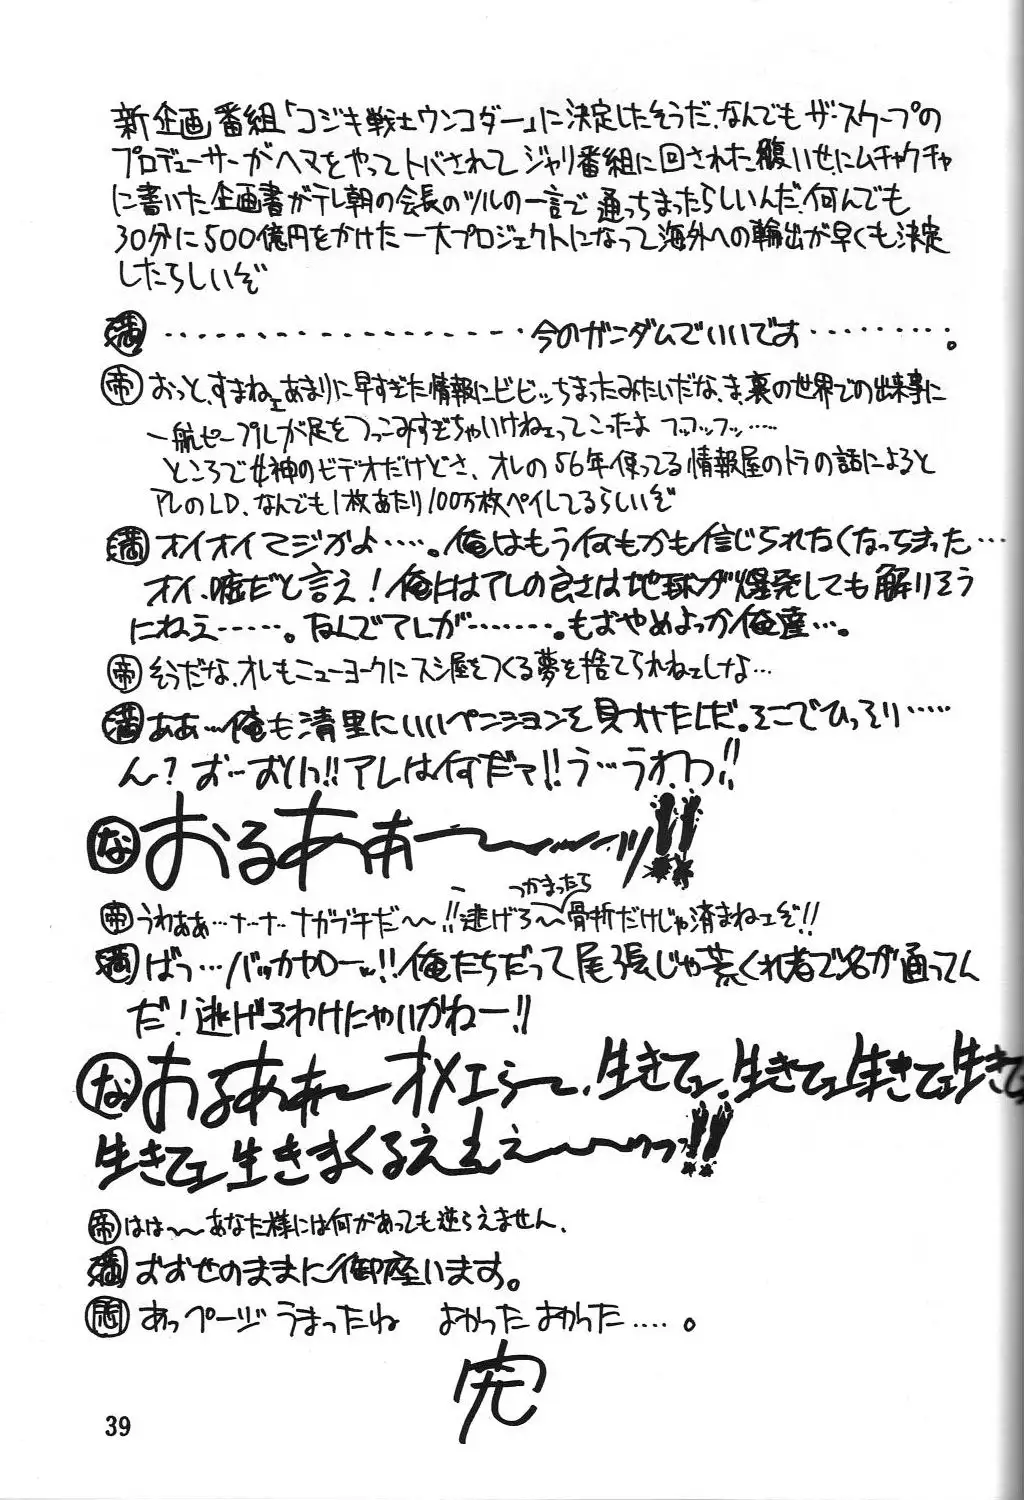 新企画番組「コジキ戦士ウンコダー」に決定したそうだ、なんでもザ・スクープの
プロデューサーがヘマをやってトバされてジャリ番組に回された腹いせにムチャクチャ
に書いた企画書がテレ朝の会長のツルの一言で通っちまったらしいんだ、何んでも
30分に500億円をかけた一大プロジェクトになって海外への輸出が早くも決定
したらしいぞ
満 ・・・・・・・・・・・・・・・・今のガンダムでいいです・・・・・・・・。
帝 おっと、すまねェあまりに早すぎた情報にビビッちまったみたいだな、ま、裏の世界での出来事に
一般ピープルが足をつっこみすぎちゃいけねェってこったよ フッフッフッ……
ところで女神のビデオだけどさ、オレの56年使ってる情報屋のトラの話によると
アレのLD、なんでも1枚あたり100万枚ペイしてるらしいぞ
満 オイオイマジかよ……。俺はもう何もかも信じられなくなっちまった…
オイ、嘘だと言え!俺にはアレの良さは地球が爆発しても解りそう
にねえ……。なんでアレが………。もおやめよっか俺達…。
帝 そうだな、オレもニューヨークにスシ屋をつくる夢を捨てられねェしなよ…
満 ああ…俺も清里にいいペンションを見つけたしだ。そこでひっそり……
ん?おーおいっ!!アレは何だァ!!う…うわっ!!
な おるあぁー〜〜ッ!!
帝 うわぁぁ…ナ…ナ…ナガブチだ〜〜!!逃げろ〜
つかまったら
骨折だけじゃ済まねェぞ!!
満 ばっ…バッカヤローッ!!俺たちだって尾張じゃ荒くれ者で名が通ってん
だ!逃げるわけにゃいかねー!!
な おるあぁ〜オメェら〜、生きてェ、生きてェ生きてェ生きて
生きてェ生きまくるえぇぇ〜〜ゥっっ!!
帝 はは〜〜あなた様には何があっても逆らえません、
満 おおせのままに御座います。
あっページうまったね よかったよかった……。
完
39